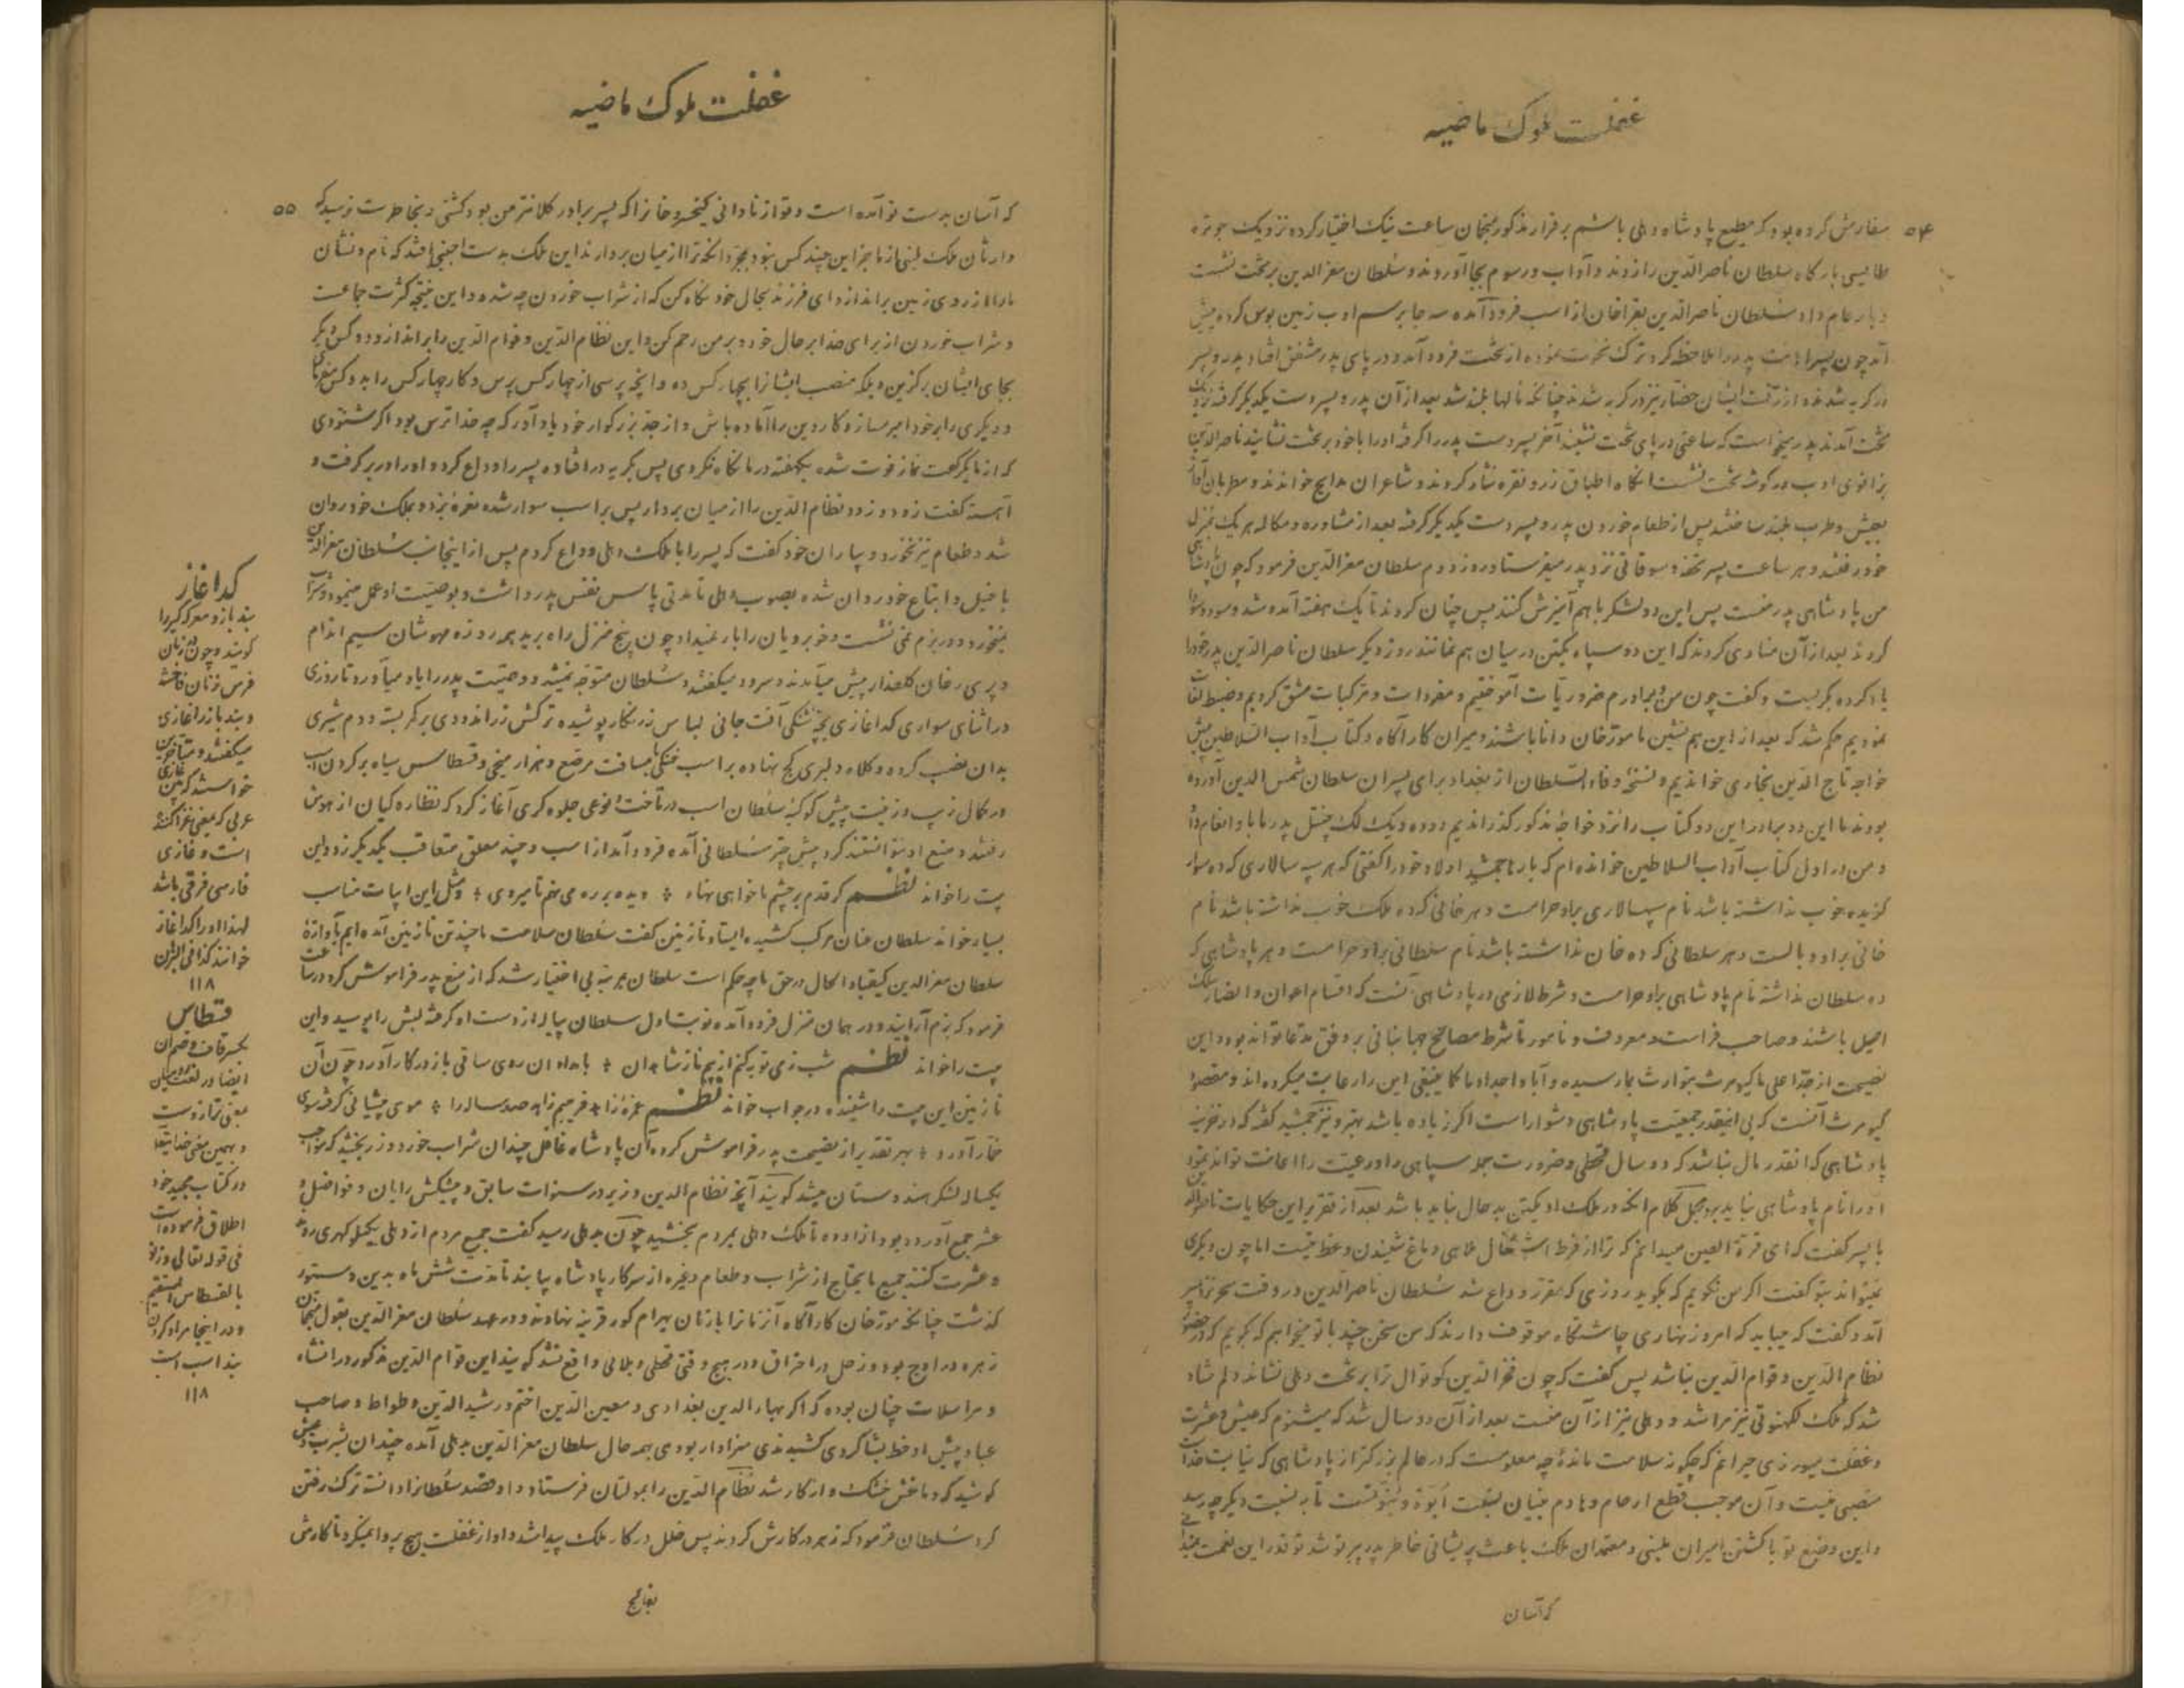 غفلت ملوک ماضیه
۵۴
سفارش کرده بود که مطیع پادشاه دهلی باشم برقرار مذکور منجمان ساعت نیک اختیار کرده نزدیک جوتره
طایسی بارگاه سلطان ناصرالدین را زدند و آداب و رسوم بجا آوردند و سلطان معزالدین بر تخت نشست
و بار عام داد سلطان ناصرالدین بغراخان از اسب فرود آمده سه جا برسم ادب زمین بوس کرده پیش
آمد چون پسر اهانت پدر را ملاحظه کرد ترک نخوت نموده از تخت فرود آمد و در پای پدر مشفق افتاد پدر و پسر
در گریه شدند و از رقت ایشان حضار نیز در گریه شدند چنانکه نالها بلند شد بعد از آن پدر و پسر دست یکدیگر گرفته نزدیک
تخت آمدند پدر میخواست که ساعتی در پای تخت نشیند آخر پسر دست پدر را گرفته او را با خود بر تخت نشانید ناصرالدین
بزانوی ادب در گوشه تخت نشست آنگاه اطباق زر و نقره نثار کردند و شاعران مدایح خواندند و مطربان آواز
بعیش و طرب بلند ساختند پس از طعام خوردن پدر و پسر دست یکدیگر گرفته بعد از مشاوره و مکالمه هر یک بمنزل
خود رفتند و هر ساعت پسر تحفه و سوقاتی نزد پدر میفرستاد روز دوم سلطان معزالدین فرمود که چون پادشاهی
من پادشاهی پدر منست پس این دو لشکر باهم آمیزش کنند پس چنان کردند تا یک هفته آمد و شد و سود و سودا
کردند بعد از آن منادی کردند که این دو سپاه یکتن در میان هم نمانند روز دیگر سلطان ناصرالدین پدر خود را
یاد کرده بگریست و گفت چون من و برادرم ضروریات آموختیم و مفردات و مرکبات مشق کردیم و ضبط لغات
نمودیم حکم شد که بعد از این هم نشین با مورخان دانا باشند و میران کارآگاه و کتاب آداب السلاطین پیش
خواجه تاج الدین بخاری خواندیم و نسخه وفاء السلطان از بغداد برای پسران سلطان شمس الدین آورده
بودند ما این دو برادر این دو کتاب را نزد خواجه مذکور گذرانیدیم و دوه و یک لک چیتل پدر ما باو انعام داد
و من در اول کتاب آداب السلاطین خوانده ام که بارها جمشید اولاد خود را گفتی که هر سپه سالاری که ده سوار
گزیده خوب نداشته باشد نام سپهسالاری براو حرامست و هر خانی که ده ملک خوب نداشته باشد نام
خانی بر او وبالست و هر سلطانی که ده خان نداشته باشد نام سلطانی براو حرامست و هر پادشاهی که
ده سلطان نداشته نام پادشاهی براو حرامست و شرط لازمی در پادشاهی آنست که اقسام اعوان و انصار ملک
اصیل باشند و صاحب فراست و معروف و نامور تا شرط مصالح جهانبانی بر وفق مدعا تواند بود و این
نصیحت از جد اعلی ما کیومرث بتوارث بما رسیده و آبا و اجداد ما کما ینبغی این را رعایت میکرده اند و مقصود
کیومرث آنست که بی اینقدر جمعیت پادشاهی دشوار است اگر زیاده باشد بهتر و نیز جمشید گفته که در خزینه
پادشاهی که آنقدر مال نباشد که دو سال قحطی و ضرورت مجمله سپاهی را و رعیت را اعانت تواند نمود
او را نام پادشاهی نباید برد مجمل کلام آنکه در ملک او یکتن بدحال نباید باشد بعد از تقریر این حکایات ناصرالدین
با پسر گفت که ای قرة العین میدانم که ترا از فرط اشتغال ملاهی دماغ شنیدن وعظ نیست اما چون دیگری
نمیتواند بتو گفت اگر من نگویم که بگوید روزی که مقرر وداع شد سلطان ناصرالدین در وقت سحر نزد پسر
آمد و گفت که میباید که امروز نهاری چاشتگاه موقوف دارند که من سخن چند با تو میخواهم که بگویم که در حضور
نظام الدین و قوام الدین نباشد پس گفت که چون فخرالدین کوتوال ترا بر تخت دهلی نشاند دلم شاد
شد که ملک لکهنوتی نیز مرا شد و دهلی نیز از آن منست بعد از آن دو سال شد که میشنوم که بعیش و عشرت
و غفلت میورزی حیرانم که چگونه سلامت مانده چه معلومست که در عالم بزرگتر از پادشاهی که نیابت خداست
منصبی نیست و آن موجب قطع ارحام و هادم بنیان نسبت ابوة و بنوتست تا به نسبت دیگر چه رسد
و این وضع تو با کشتن امیران بلبنی و معتمدان ملک باعث پریشانی خاطر پدر پیر تو شد تو قدر این نعمت ندانی
که آسان
غفلت ملوک ماضیه
۵۵
که آسان بدست تو آمده است و تو از نادانی کیخسرو خان را که پسر برادر کلانتر من بود کشتی و بخاطرت نرسید که
وارثان ملک بلبنی از ما بجز این چند کس نبود بمجرد آنکه ترا از میان بردارند این ملک بدست اجنبی افتد که نام و نشان
ما را از روی زمین براندازد ای فرزند بحال خود نگاه کن که از شراب خوردن چه شده و این نتیجه کثرت جماعت
و شراب خوردن از برای خدا بر حال خود و بر من رحم کن و این نظام الدین و قوام الدین را برانداز و دو کس دیگر
بجای ایشان برگزین و بلکه منصب ایشان را بچهار کس ده و آنچه پرسی از چهار کس پرس و کار چهار کس را بدو کس مفرما
و دیگری را بر خود امیر مساز و کار دین را آماده باش و از جد بزرگوار خود یاد آور که چه خداترس بود اگر شنودی
که از ما یکرکعت نماز فوت شده یکهفته در ما نگاه نکردی پس بگریه در افتاده پسر را وداع کرد و او را در بر گرفت و
آهسته گفت زود زود نظام الدین را از میان بردار پس بر اسب سوار شده نعره بزد و بملک خود روان
شد و طعام نیز نخورد و بیاران خود گفت که پسر را با ملک دهلی وداع کردم پس از اینجانب سلطان معزالدین
با خیل و اتباع خود روان شده بصوب دهلی تا مدتی پاس نفس پدر داشت و بوصیت او عمل مینمود و شراب
نمیخورد و در بزم نمی نشست و خوبرویان را بار نمیداد چون پنج منزل راه برید هر روزه مهوشان سیم اندام
و پری رخان گلعذار پیش میآمدند و سرود میگفتند و سلطان متوجه نمیشد و وصیت پدر را بیاد میآورد تا روزی
در اثنای سواری گداغازی بچه شنگی آفت جانی لباس زرنگار پوشیده ترکش زراندودی بر کمر بسته و دم شیری
بدان نصب کرده و کلاه دلبری کج نهاده بر اسب خنگی بمسافت مرصع و هزار میخی و قسطاس سیاه بر گردن اسب
در کمال زیب و زینت پیش کوکبه سلطان اسب در تاخت و نوعی جلوه گری آغاز کرد که نظاره کیان از هوش
رفتند و منع او نتوانستند کرد پیش چتر سلطانی آمده فرود آمد از اسب و چند معلق متعاقب یکدیگر زد و این
بیت را خواند نظم گر قدم بر چشم ما خواهی نهاد ٭ دیده بر ره می نهم تا میروی ٭ و مثل این ابیات مناسب
بسیار خواند سلطان عنان مرکب کشیده ایستاد نازنین گفت سلطان سلامت ما چند تن نازنین آمده ایم بآوازه
سلطان معزالدین کیقباد الحال در حق ما چه حکم است سلطان بمرتبه بی اختیار شد که از منع پدر فراموش کرد در ساعت
فرمود که بزم آرایند و در همان منزل فرود آمده نوبت اول سلطان پیاله از دست او گرفته لبش را بوسید و این
بیت را خواند نظم شب زمی توبه کنم از بیم ناز شاهدان ٭ بامدادان روی ساقی باز در کار آورد چون آن
نازنین این بیت را شنیده در جواب خواند نظم غمزه زاهد فریبم زاهد صد ساله را ٭ موی پیشانی گرفته سوی
خمار آورد ٭ بهر تقدیر از نصیحت پدر فراموش کرده آن پادشاه غافل چندان شراب خورد و زر بخشید که مواجب
یکساله لشکر هندوستان میشد گویند آنچه نظام الدین وزیر در سنوات سابق و پیشکش رایان و فواضل و
عشر جمع آورده بود از اوده تا ملک دهلی بمردم بخشید چون بدهلی رسید گفت جمیع مردم از دهلی بکیلوکهری روند
و عشرت کنند جمیع مایحتاج از شراب و طعام و غیره از سرکار پادشاه بیابند تا مدت شش ماه بدین دستور
گذشت چنانکه مورخان کارآگاه آن زمان را با زمان بهرام گور قرینه نهادند و در عهد سلطان معزالدین بقول منجمان
زهره در اوج بود و زحل در احتراق و در هیچ وقتی قحطی و بلائی واقع نشد گویند این قوام الدین مذکور در انشاء
و مراسلات چنان بوده که اگر بهاءالدین بغدادی و معین الدین اختم و رشیدالدین وطواط و صاحب
عباد پیش او خط بشاگردی کشیدندی سزاوار بودی بهرحال سلطان معزالدین بدهلی آمده چندان بشرب و عیش
کوشید که دماغش خشک و از کار شد نظام الدین را بمولتان فرستاد و او قصد سلطان را دانسته ترک رفتن
کرد سلطان فرمود که زهر در کارش کردند پس خلل در کار ملک پیدا شد و او از غفلت هیچ پروا نمیکرد تا کارش
بفالج
گداغاز
بندباز و معرکه گیر را
گویند و چون بزبان
فرس زنان فاحشه
و بندباز را غازی
میگفتند و متاخرین
خواستند که بین غازی
عربی که بمعنی غزاکننده
است و غازی
فارسی فرقی باشد
لهذا او را گداغاز
خوانند کذا فی البرهان
۱۱۸
قسطاس
بکسر قاف و ضم آن
ایضا در لغت رومیان
بمعنی ترازوست
و بهمین معنی خدایتعالی
در کتاب مجید خود
اطلاق فرموده است
فی قوله تعالی وزنوا
بالقسطاس المستقیم
و در اینجا مراد گردن
بند اسب است
۱۱۸